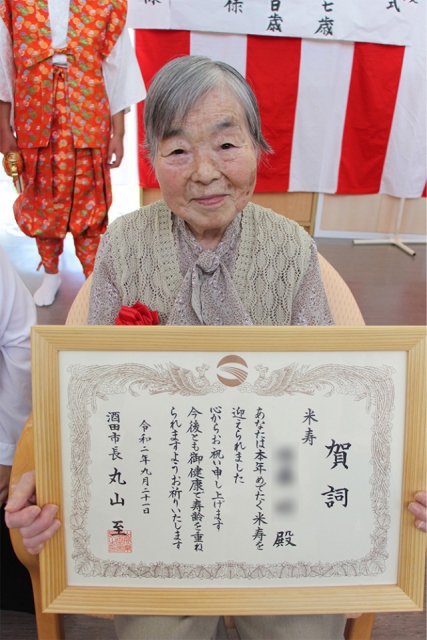 式
七歳
百歳
様
保
賀詞
米寿
殿
あなたは本年めでたく米寿を
迎えられました
心からお祝い申し上げます
今後とも御健康で寿齢を重ね
られますようお祈りいたします
令和二年九月二十一日
酒田市長 丸山至